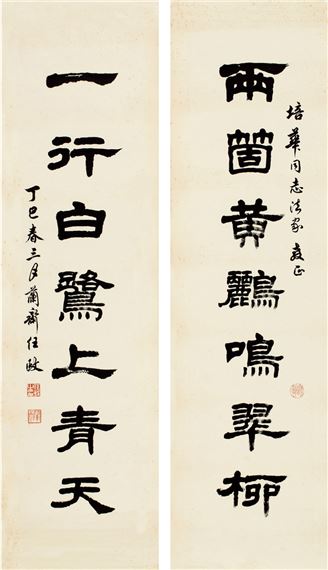 兩箇黃鸝鳴翠柳
培華同志法家教正
一行白鷺上青天
丁巳春三月蘭齋任政